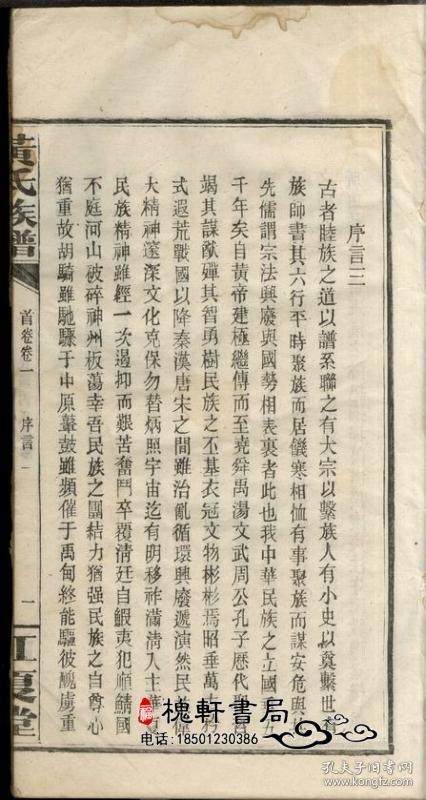 序言三
古者睦族之道以譜系聯之有大宗以繫族人有小史以奠繫世
族師書其六行平時聚族而居饑寒相恤有事聚族而謀安危與
先儒謂宗法興廢與國勢相表裏者此也我中華民族之立國
千年矣自黃帝建極繼傳而至堯舜禹湯文武周公孔子歷代
竭其謀猷殫其智勇樹民族之丕基衣冠文物彬彬焉昭垂萬
式遐荒戰國以降秦漢唐宋之間雖治亂循環興廢遞演然民
大精神邃深文化克保勿替炳照宇宙迄有明移祚滿清入主華夏
民族精神雖經一次遏抑而艱苦奮鬥卒覆清廷自鰕夷犯順鯖國
不庭河山破碎神州板蕩幸吾民族之團結力猶强民族之自尊心
猶重故胡騎雖馳驟于中原鼙鼓雖頻催于禹甸終能驅彼醜虜重
黃氏族譜
首卷卷一
序言
一
江夏堂
槐軒書局
电话:18501230386
孔夫子旧书网